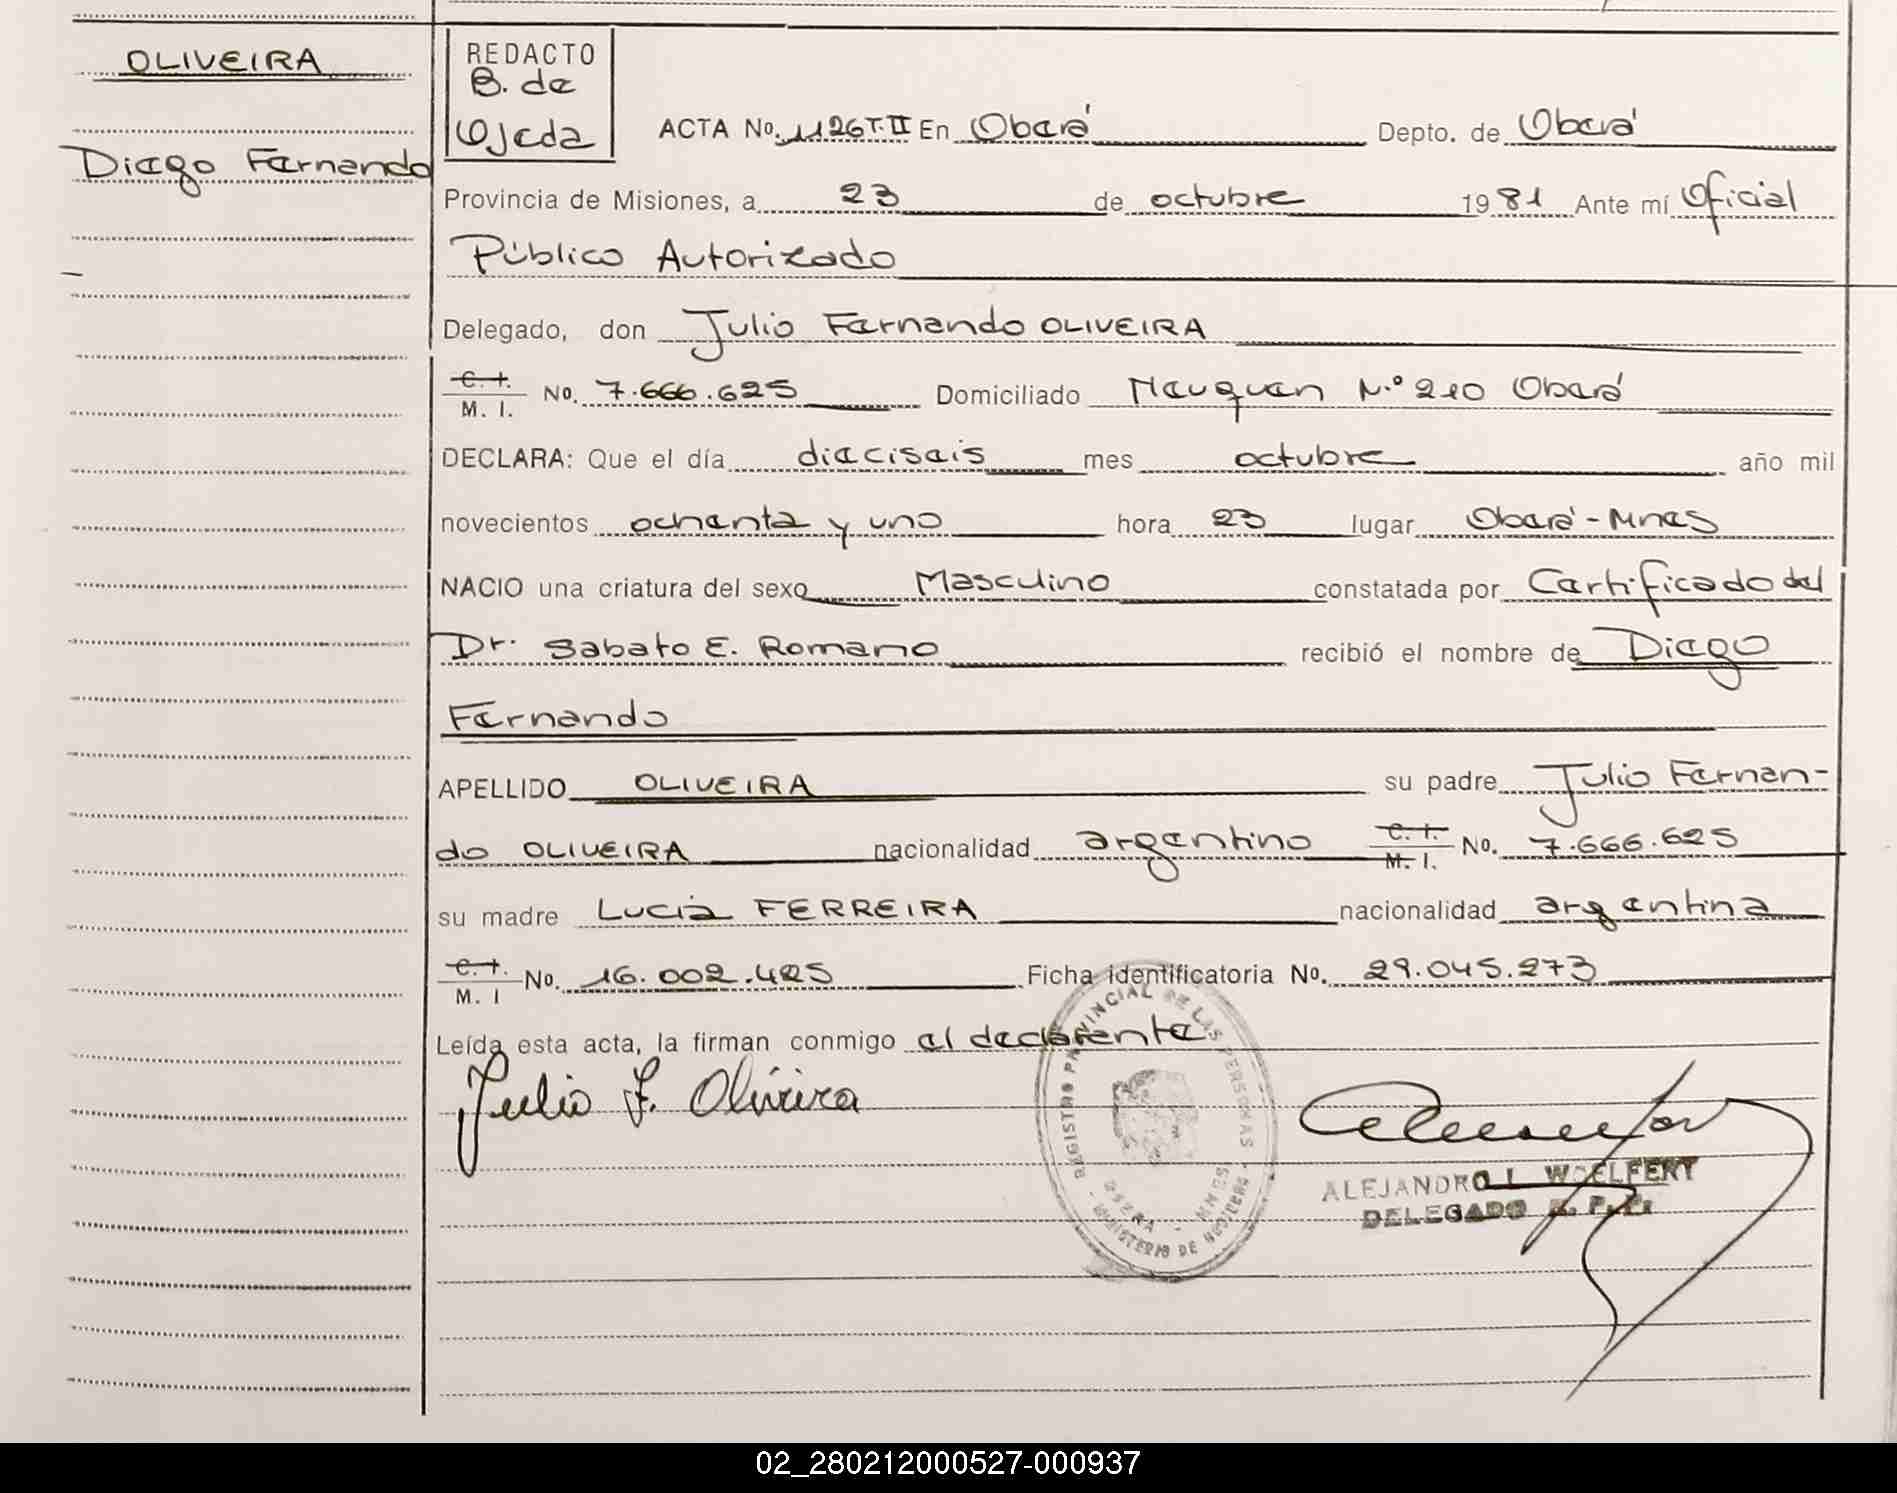 OLIVEIRA
Diego Fernando
REDACTO
B. de
Ojeda
ACTA No. 1126 T.II En Oberá Depto. de Oberá
Provincia de Misiones, a 23 de octubre 1981 Ante mí Oficial
Público Autorizado
Delegado, don Julio Fernando OLIVEIRA
C. I. / M. I. No. 7.666.625 Domiciliado Neuquen N.º 210 Oberá
DECLARA: Que el día dieciseis mes octubre año mil
novecientos ochenta y uno hora 23 lugar Oberá - Mnes
NACIO una criatura del sexo Masculino constatada por Certificado del
Dr. Sabato E. Romano recibió el nombre de Diego
Fernando
APELLIDO OLIVEIRA su padre Julio Fernan-
do OLIVEIRA nacionalidad argentino C. I. / M. I. No. 7.666.625
su madre Lucia FERREIRA nacionalidad argentina
C. I. / M. I No. 16.002.425 Ficha identificatoria No. 29.045.273
Leída esta acta, la firman conmigo el declarente
Julio F. Oliveira
REGISTRO PROVINCIAL DE LAS PERSONAS
MINISTERIO DE
OBERA
ALEJANDRO L. WOELFERT
DELEGADO R. P. P.
02_280212000527-000937